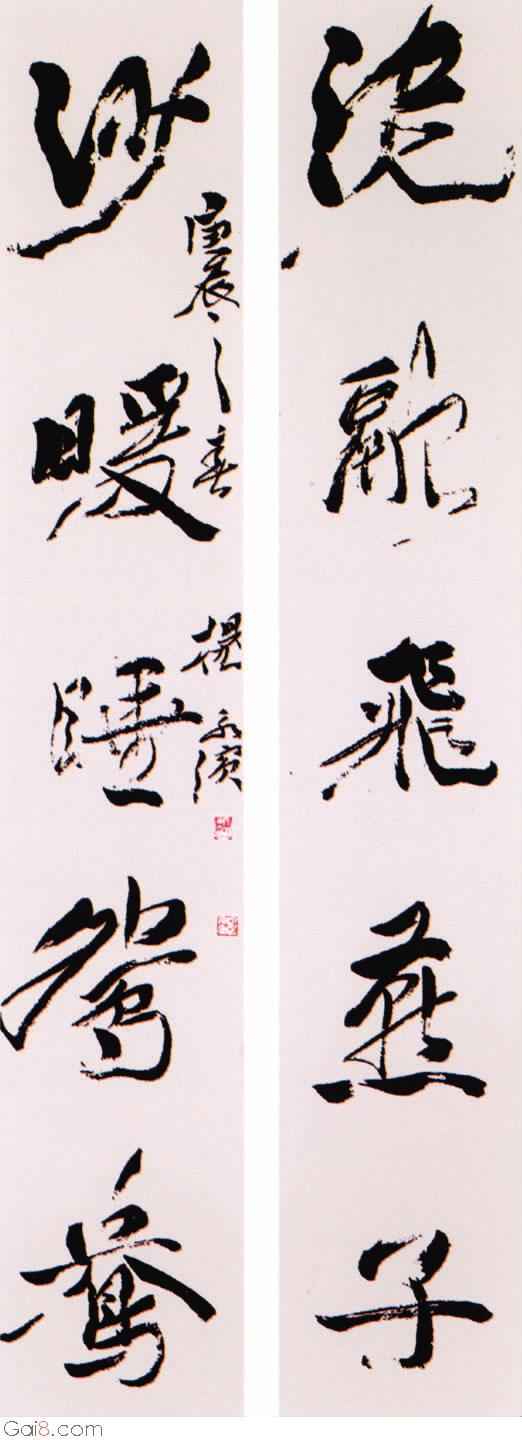 泥融飛燕子
沙暖睡鴛鴦
庚辰之春
楊
Gai8.com